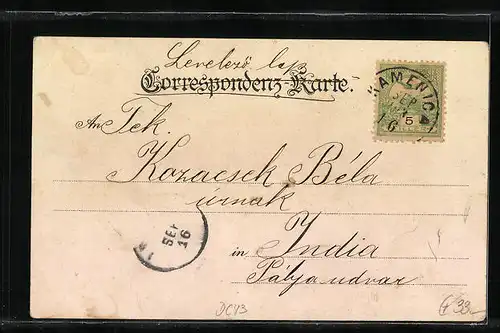 Levelező lap
Correspondenz-Karte.
KAMENICA
SEP
16
5
An Tek.
Kozacsek Béla
úrnak
SEP
16
in India
Pályaudvar
DC43
33